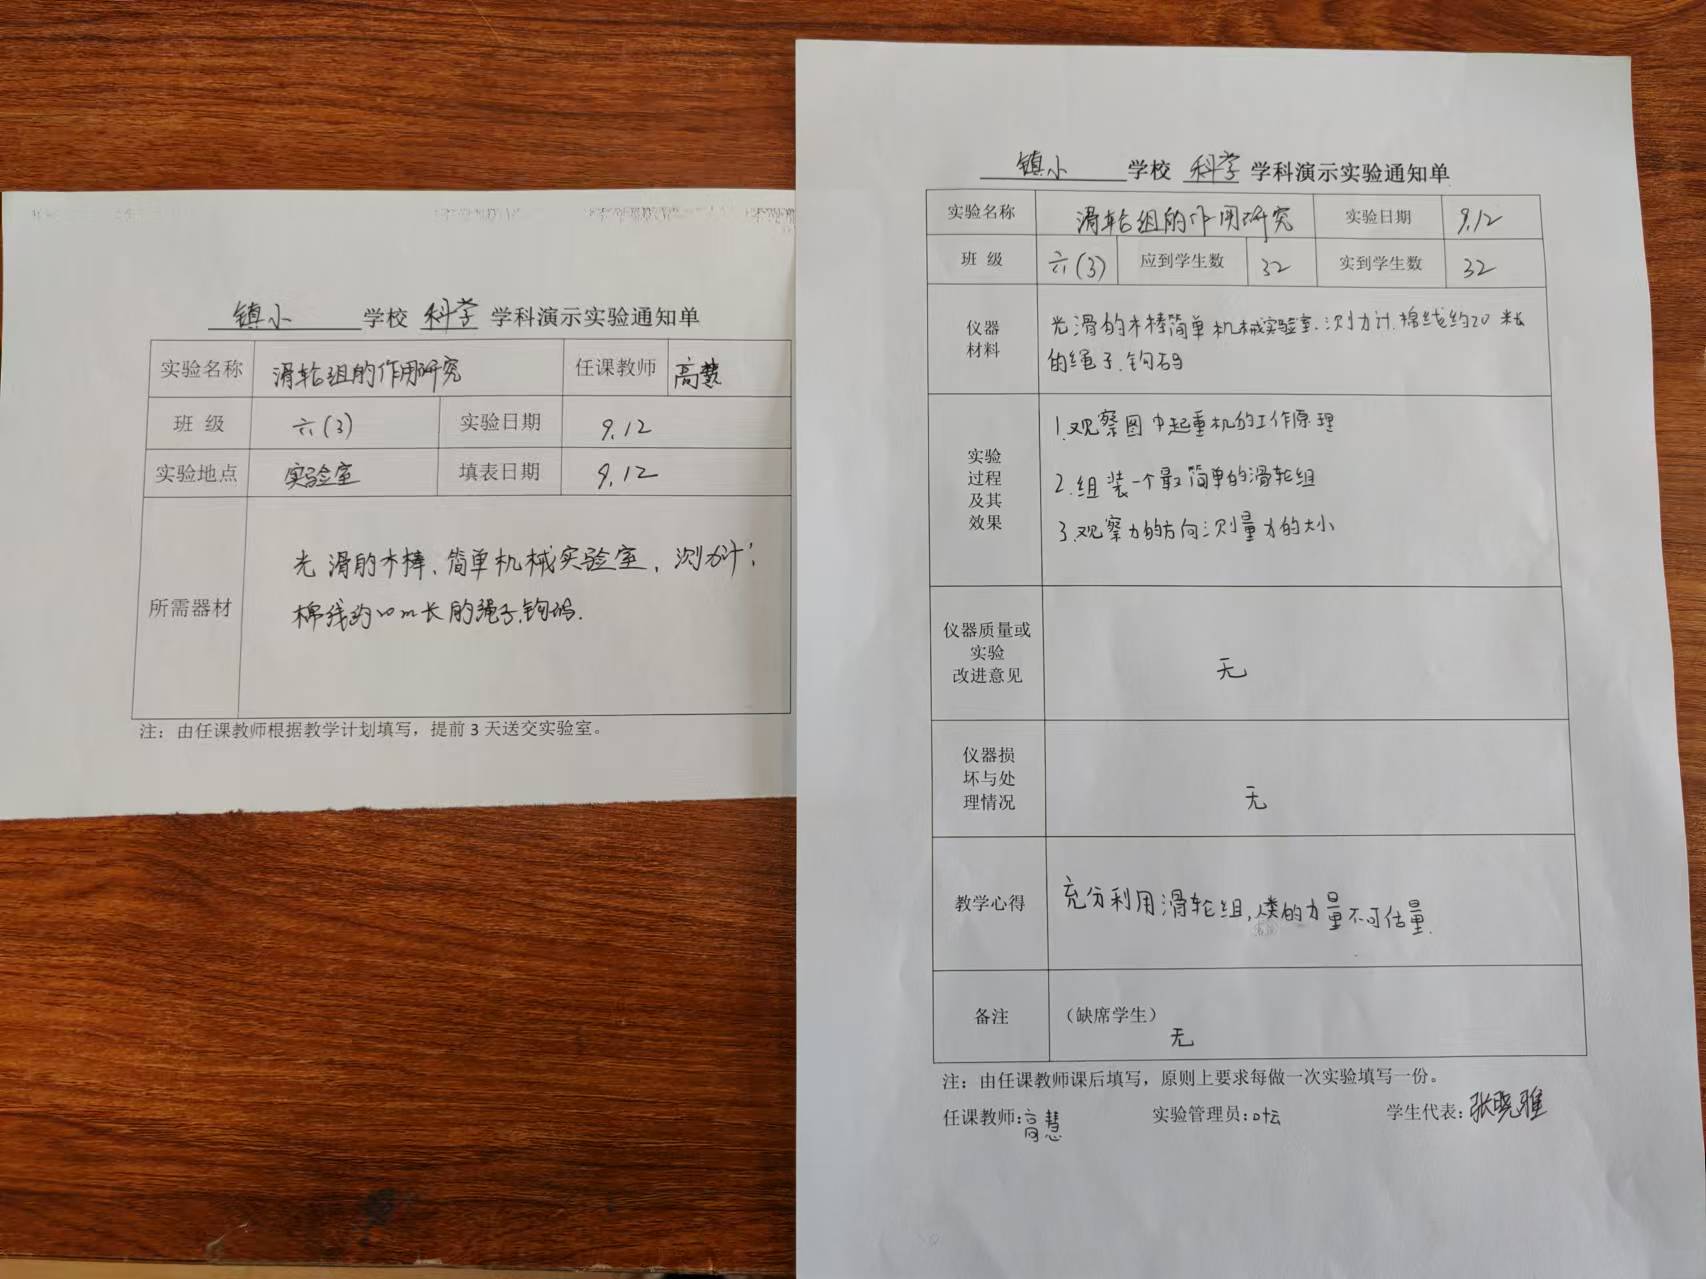 镇小 学校 科学 学科演示实验通知单
实验名称 滑轮组的作用研究 任课教师 高慧
班 级 六(3) 实验日期 9.12
实验地点 实验室 填表日期 9.12
所需器材
光滑的木棒、简单机械实验室、测力计、
棉线约20m长的绳子.钩码.
注：由任课教师根据教学计划填写，提前 3 天送交实验室。
镇小 学校 科学 学科演示实验通知单
实验名称 滑轮组的作用研究 实验日期 9.12
班 级 六(3) 应到学生数 32 实到学生数 32
仪器
材料
光滑的木棒简单机械实验室.测力计.棉线约20米长
的绳子.钩码
实验
过程
及其
效果
1.观察图中起重机的工作原理
2.组装一个最简单的滑轮组
3.观察力的方向测量力的大小
仪器质量或
实验
改进意见
无
仪器损
坏与处
理情况
无
教学心得 充分利用滑轮组,人类的力量不可估量.
备注 （缺席学生）
无
注：由任课教师课后填写，原则上要求每做一次实验填写一份。
任课教师:高慧 实验管理员:叶云 学生代表:张晓雅